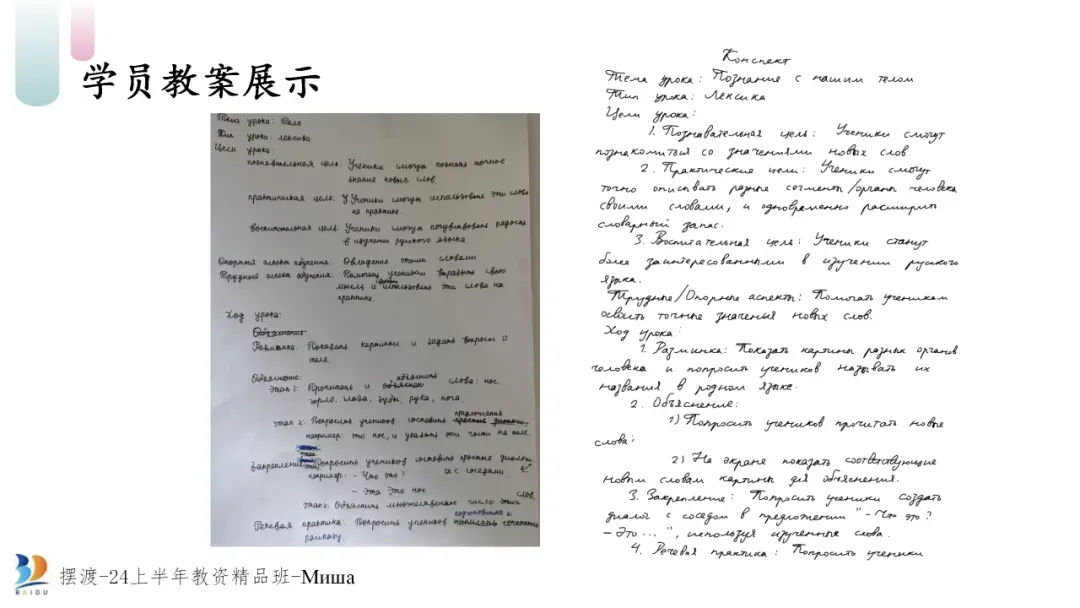 学员教案展示
Тема урока: Тело
Тип урока: лексика
Цели урока:
познавательная цель: Ученики смогут познать точное
знание новых слов.
практическая цель: У Ученики смогут использовать эти слова
на практике.
воспитательная цель: Ученики смогут почувствовать радость
в изучении русского языка.
Опорный аспект обучения: Овладение этими словами
Трудный аспект обучения: Помогать ученикам выражать свою
мысль и использовать эти слова на
практике.
Ход урока:
Объяснение
Разминка: Показать картинки и задать вопросы о
теле.
Объяснение:
этап 1: Прочитать и объяснить слова: нос,
горло, глава, зубы, рука, нога.
этап 2: Попросить учеников составить предложения
например: это нос, и указать эти части на теле.
Закрепление: Попросить учеников составить простые диалоги
с соседами
например: - Что это?
- Это Это нос
этап 2: Объяснить множественное число этих слов.
Речевая практика: Попросить учеников подготовить к сочинению
рассказу.
Конспект
Тема урока: Познание с нашим телом
Тип урока: Лексика
Цели урока:
1. Познавательная цель: Ученики смогут
познакомиться со значениями новых слов
2. Практические цели: Ученики смогут
точно описвать разные сегменты/органы человека
своими словами, и одновременно расширить
словарный запас.
3. Воспитательная цель: Ученики станут
более заинтересованными в изучении русского
языка.
Трудные/Опорные аспекты: Помогать ученикам
освоить точные значения новых слов.
Ход урока:
1. Разминка: Показать картины разных органов
человека и попросить учеников называть их
названия в родном языке.
2. Объяснение:
1) Попросить учеников прочитать новые
слова;
2) На экране показать соответствующие
новым словам картины для объяснения.
3. Закрепление: Попросить ученики создать
диалог с соседом в предложении "-Что это?
-Это...", используя изученные слова.
4. Речевая практика: Попросить ученики
BAIDU
摆渡-24上半年教资精品班-Миша